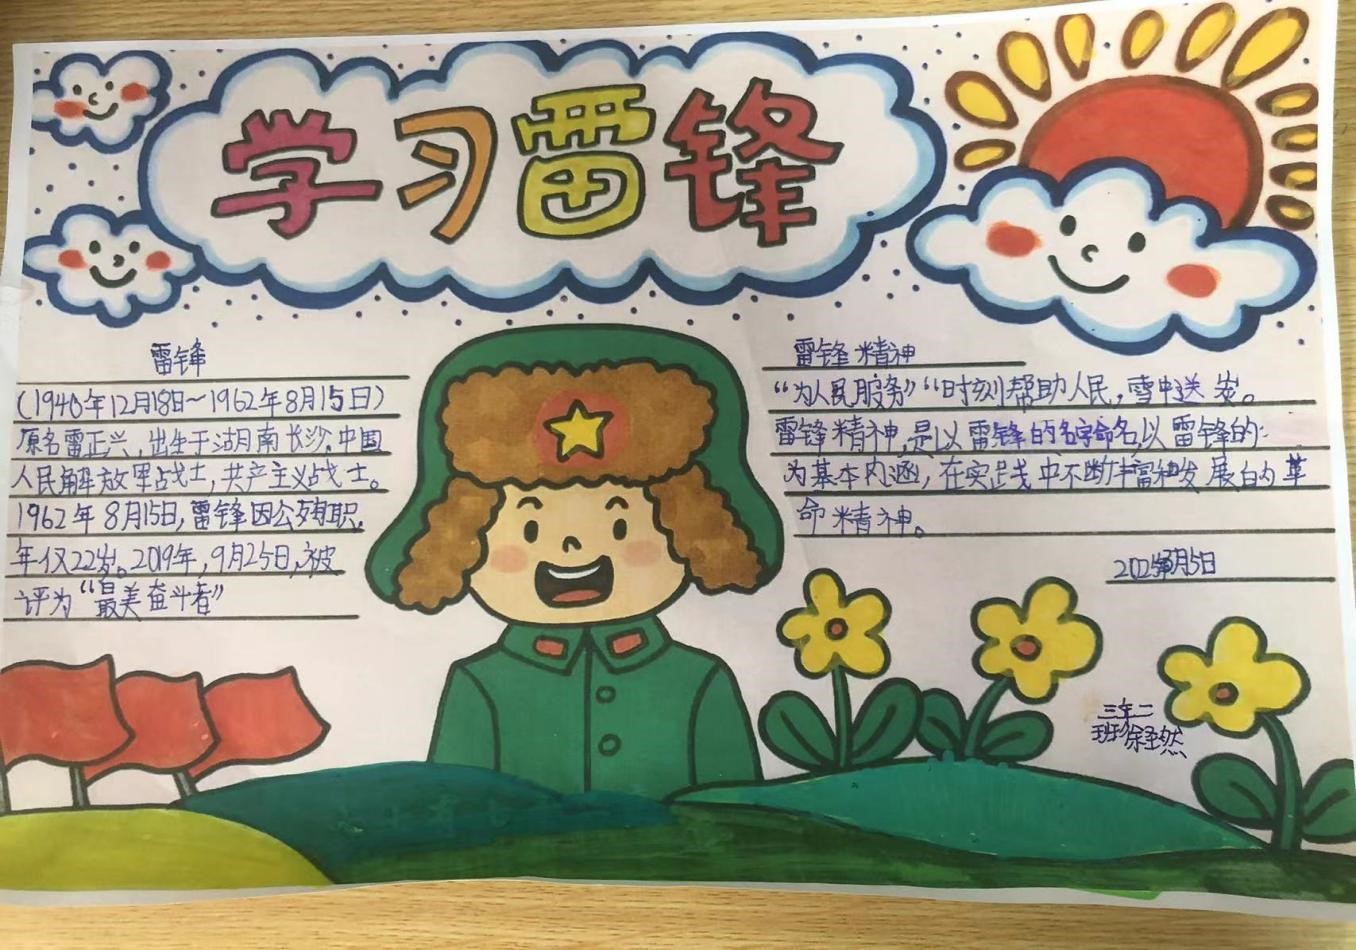 学习雷锋
雷锋
(1940年12月18日～1962年8月15日)
原名雷正兴，出生于湖南长沙，中国
人民解放军战士，共产主义战士。
1962年8月15日，雷锋因公殉职，
年仅22岁。2019年，9月25日，被
评为“最美奋斗者”
雷锋精神
“为人民服务”“时刻帮助人民，雪中送炭。
雷锋精神，是以雷锋的名字命名以雷锋的
为基本内涵，在实践中不断丰富和发展的革
命精神。
月5日
三年二
班徐圣然